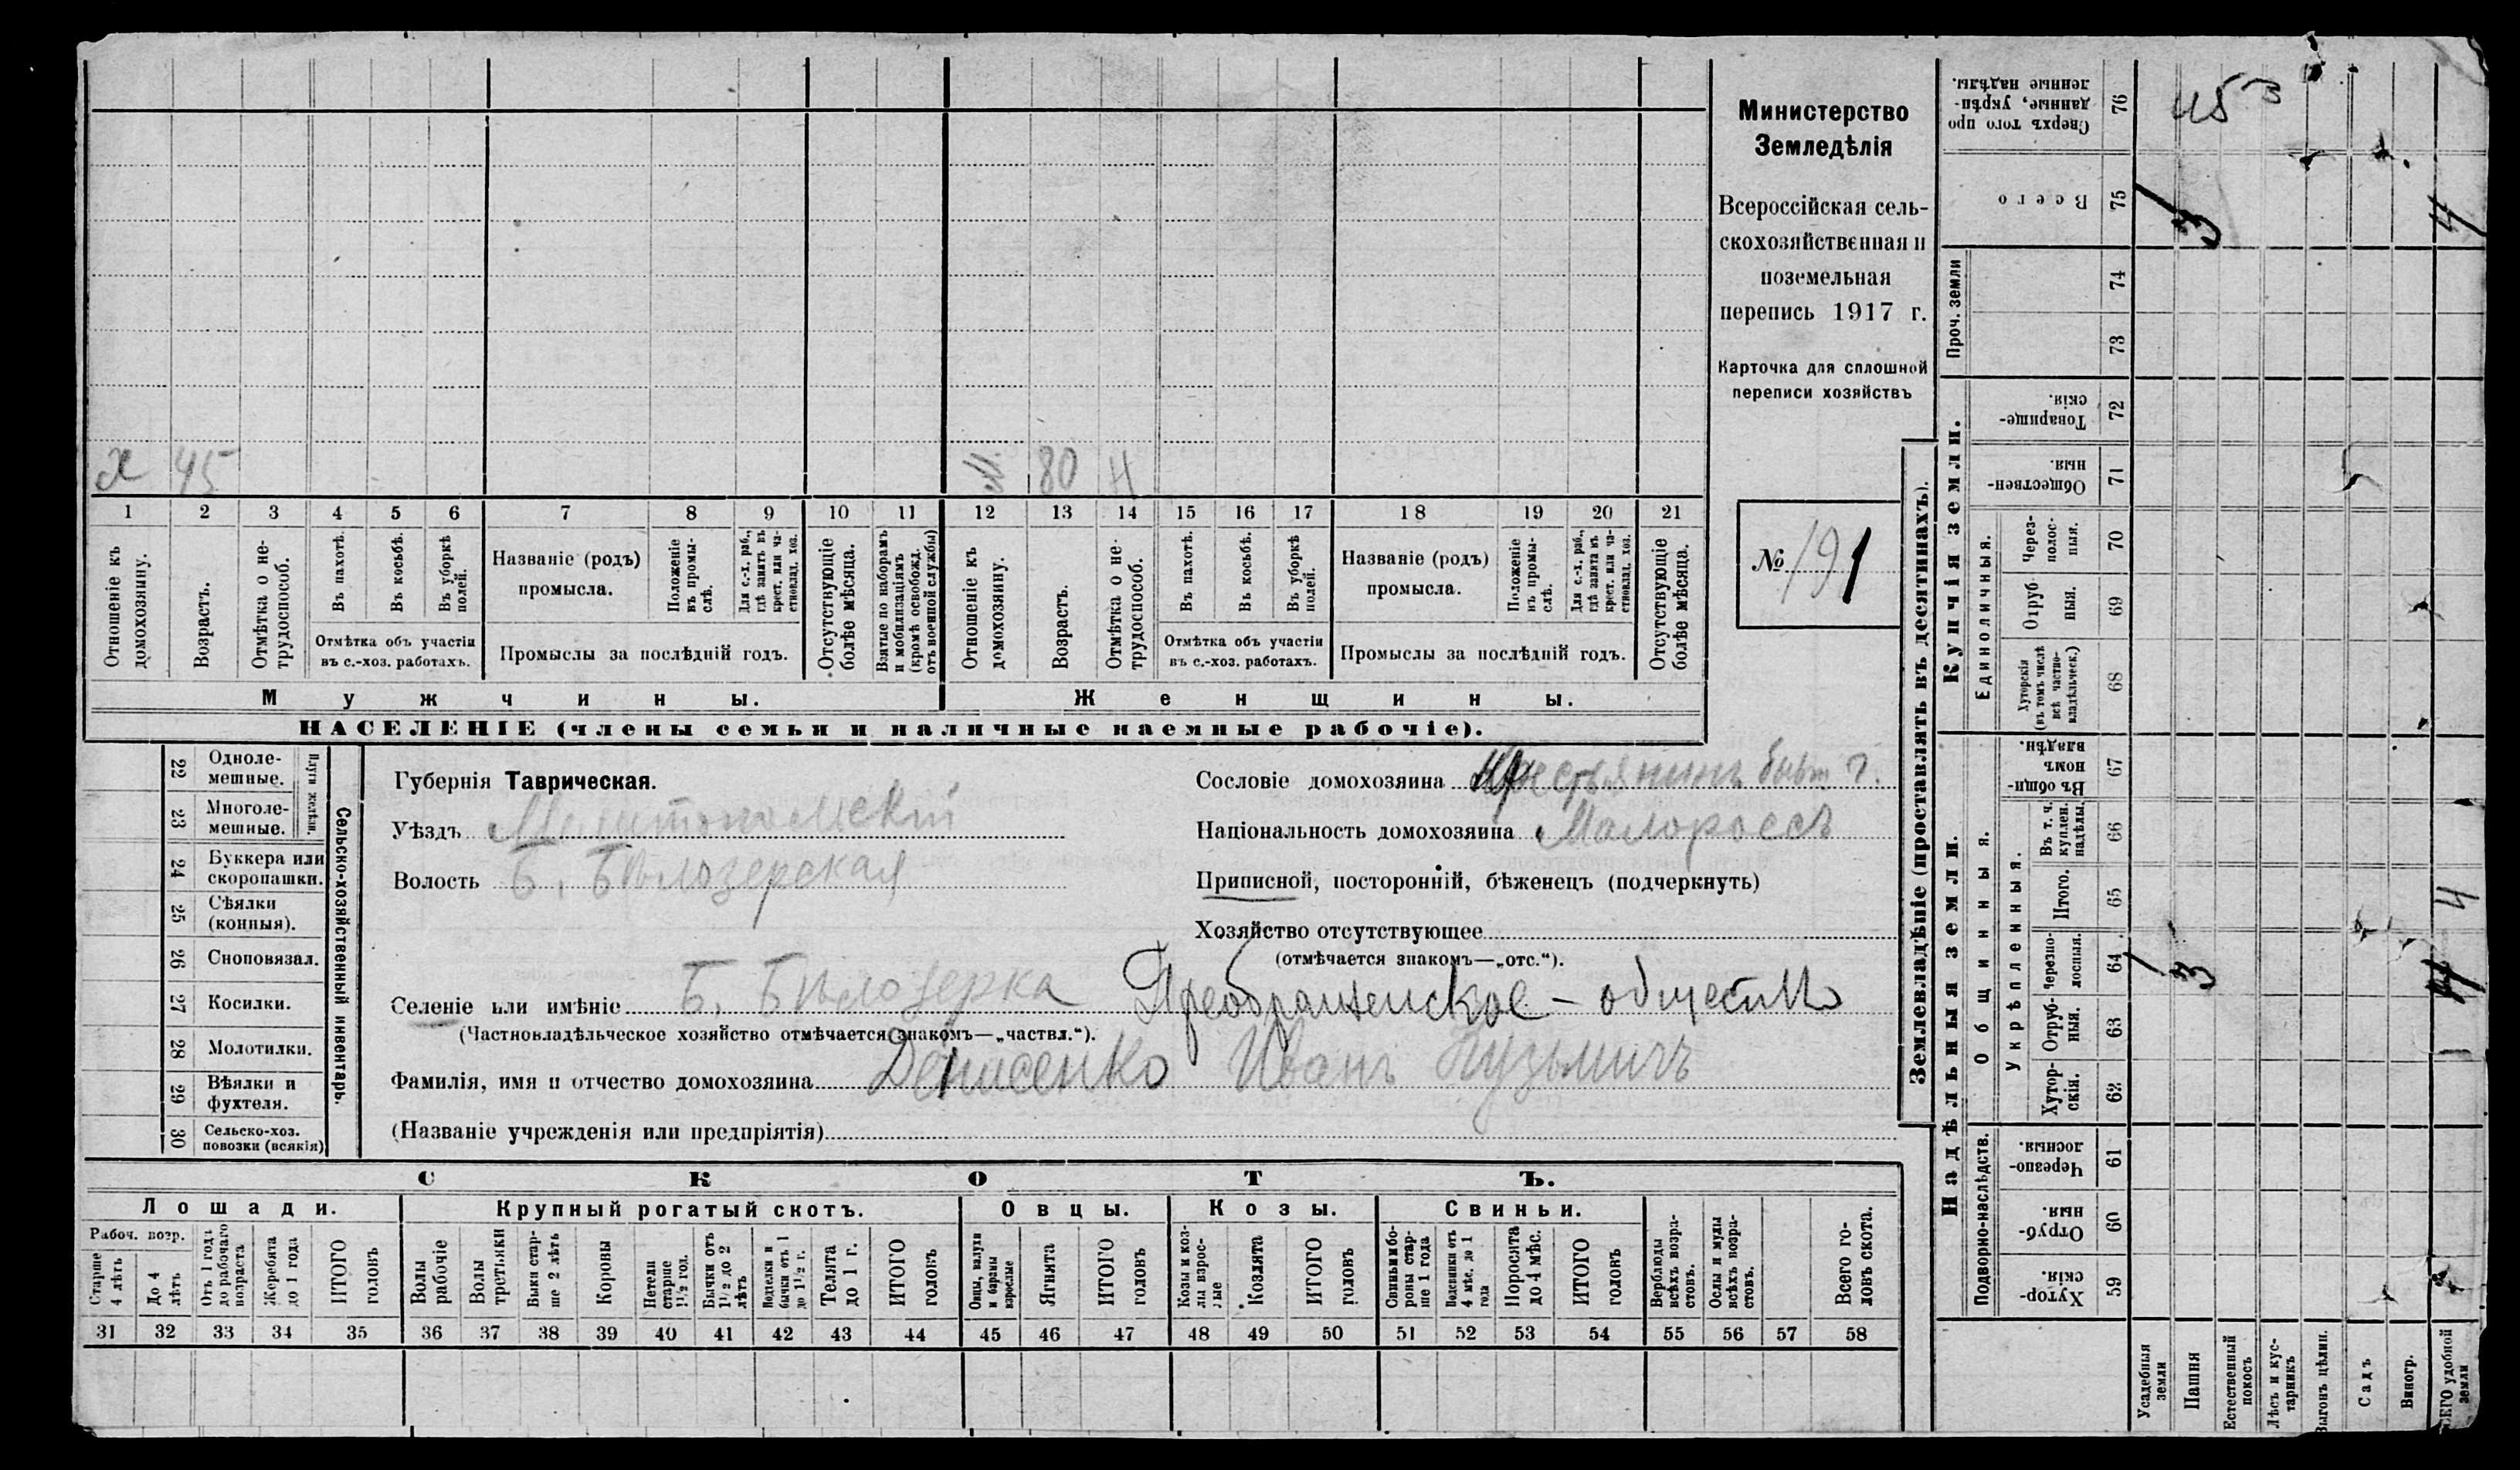 х 45 м. 80 Н
1 2 3 4 5 6 7 8 9 10 11 12 13 14 15 16 17 18 19 20 21
Отношеніе къ домохозяину.
Возрастъ.
Отмѣтка о нетрудоспособ.
Въ пахотѣ.
Въ косьбѣ.
Въ уборкѣ полей.
Отмѣтка объ участіи
въ с.-хоз. работахъ.
Названіе (родъ)
промысла.
Положеніе въ промыслѣ.
Для с.-х. раб., гдѣ занятъ въ крест. или частновлад. хоз.
Промыслы за послѣдній годъ.
Отсутствующіе болѣе мѣсяца.
Взятые по наборамъ и мобилизаціямъ (кромѣ освобожд. отъ военной службы)
Отношеніе къ домохозяину.
Возрастъ.
Отмѣтка о нетрудоспособ.
Въ пахотѣ.
Въ косьбѣ.
Въ уборкѣ полей.
Отмѣтка объ участіи
въ с.-хоз. работахъ.
Названіе (родъ)
промысла.
Положеніе въ промыслѣ.
Для с.-х. раб., гдѣ занята въ крест. или частновлад. хоз.
Промыслы за послѣдній годъ.
Отсутствующіе болѣе мѣсяца.
Мужчины.
Женщины.
НАСЕЛЕНІЕ (члены семьи и наличные наемные рабочіе).
Министерство
Земледѣлія
Всероссійская сель-
скохозяйственная и
поземельная
перепись 1917 г.
Карточка для сплошной
переписи хозяйствъ
№ 191
22 Одноле-
мешные.
23 Многоле-
мешные.
Плуги желѣзн.
24 Буккера или
скоропашки.
25 Сѣялки
(конныя).
26 Сноповязал.
27 Косилки.
28 Молотилки.
29 Вѣялки и
фухтеля.
30 Сельско-хоз.
повозки (всякія)
Сельско-хозяйственный инвентарь.
Губернія Таврическая.
Уѣздъ Мелитопольскій
Волость Б. Бѣлозерская
Сословіе домохозяина крестьянинъ
Національность домохозяина Малороссъ
Приписной, посторонній, бѣженецъ (подчеркнуть)
Хозяйство отсутствующее
(отмѣчается знакомъ—„отс.“).
Селеніе или имѣніе Б. Бѣлозерка Преображенское – общество
(Частновладѣльческое хозяйство отмѣчается знакомъ—„частвл.“).
Фамилія, имя и отчество домохозяина Денисенко Иванъ Кузьмичъ
(Названіе учрежденія или предпріятія)
СКОТЪ.
Лошади. Крупный рогатый скотъ. Овцы. Козы. Свиньи.
Рабоч. возр.
Старше 4 лѣтъ
До 4 лѣтъ
Отъ 1 года до рабочаго возраста
Жеребята до 1 года
ИТОГО головъ
Волы рабочіе
Волы третьяки
Быки старше 2 лѣтъ
Коровы
Нетели старше 1½ год.
Бычки отъ 1½ до 2 лѣтъ
Подтелки и бычки отъ 1 до 1½ г.
Телята до 1 г.
ИТОГО головъ
Овцы, валухи и бараны взрослые
Ягнята
ИТОГО головъ
Козы и козлы взрослые
Козлята
ИТОГО головъ
Свиньи и боровы старше 1 года
Подсвинки отъ 4 мѣс. до 1 года
Поросята до 4 мѣс.
ИТОГО головъ
Верблюды всѣхъ возрастовъ.
Ослы и мулы всѣхъ возрастовъ.
Всего головъ скота.
31 32 33 34 35 36 37 38 39 40 41 42 43 44 45 46 47 48 49 50 51 52 53 54 55 56 57 58
Землевладѣніе (проставлять въ десятинахъ).
Надѣльныя земли.
Купчія земли.
Проч. земли
Подворно-наслѣдств.
Общинныя.
Укрѣпленныя.
Единоличныя.
Хуторскія 59
Отрубныя 60
Черезполосныя. 61
Хуторскія. 62
Отрубныя. 63
Черезполосныя. 64 3 4
Итого. 65 4
Въ т. ч. куплен. надѣлы. 66
Въ общиномъ владѣн. 67
Хуторскія (въ томъ числѣ всѣ частновладѣльческ.) 68
Отрубныя. 69
Черезполосныя. 70
Общественныя. 71
Товарищескія. 72
73
74
Всего 75 3 4
Сверхъ того проданные, укрѣпленные надѣлы. 76
Усадебныя земли
Пашня
Естественный покосъ
Лѣсъ и кустарникъ
Выгонъ цѣлин.
Садъ
Виногр.
ВСЕГО удобной земли